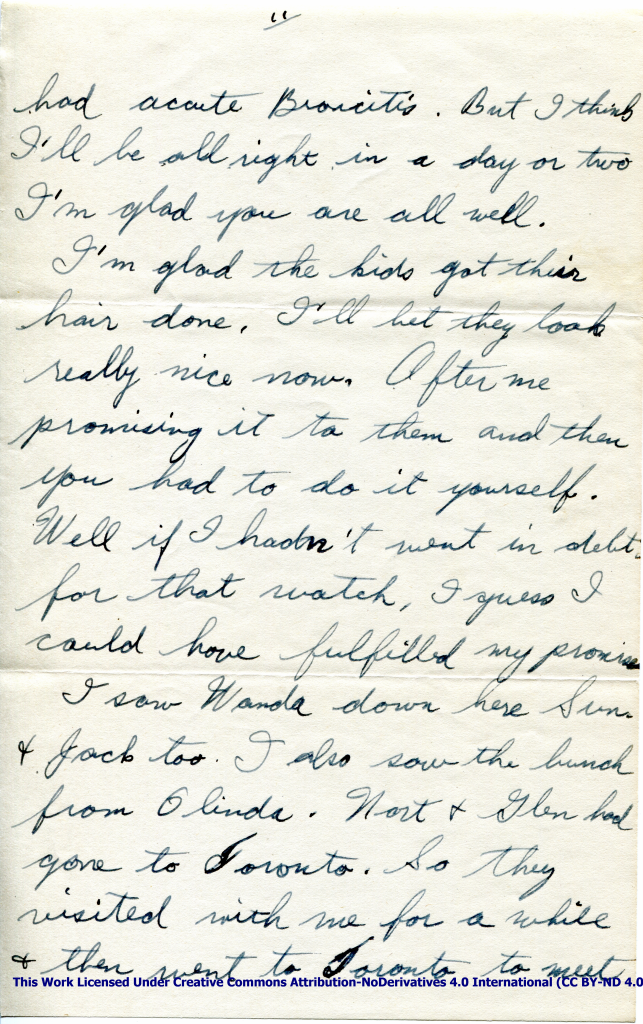 "
had acute Broncitis. But I think
I'll be all right in a day or two
I'm glad you are all well.
I'm glad the kids got their
hair done. I'll bet they look
really nice now. After me
promising it to them and then
you had to do it yourself.
Well if I hadn't went in debt
for that watch, I guess I
could have fulfilled my promise
I saw Wanda down here Sun.
& Jack too. I also saw the bunch
from Olinda. Nort & Glen had
gone to Toronto. So they
visited with me for a while
& then went to Toronto to meet
This Work Licensed Under Creative Commons Attribution-NoDerivatives 4.0 International (CC BY-ND 4.0